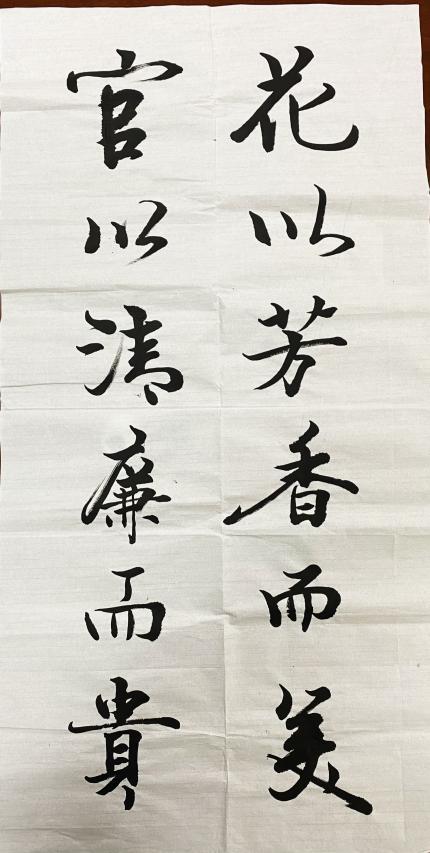 花以芳香而美
官以清廉而貴